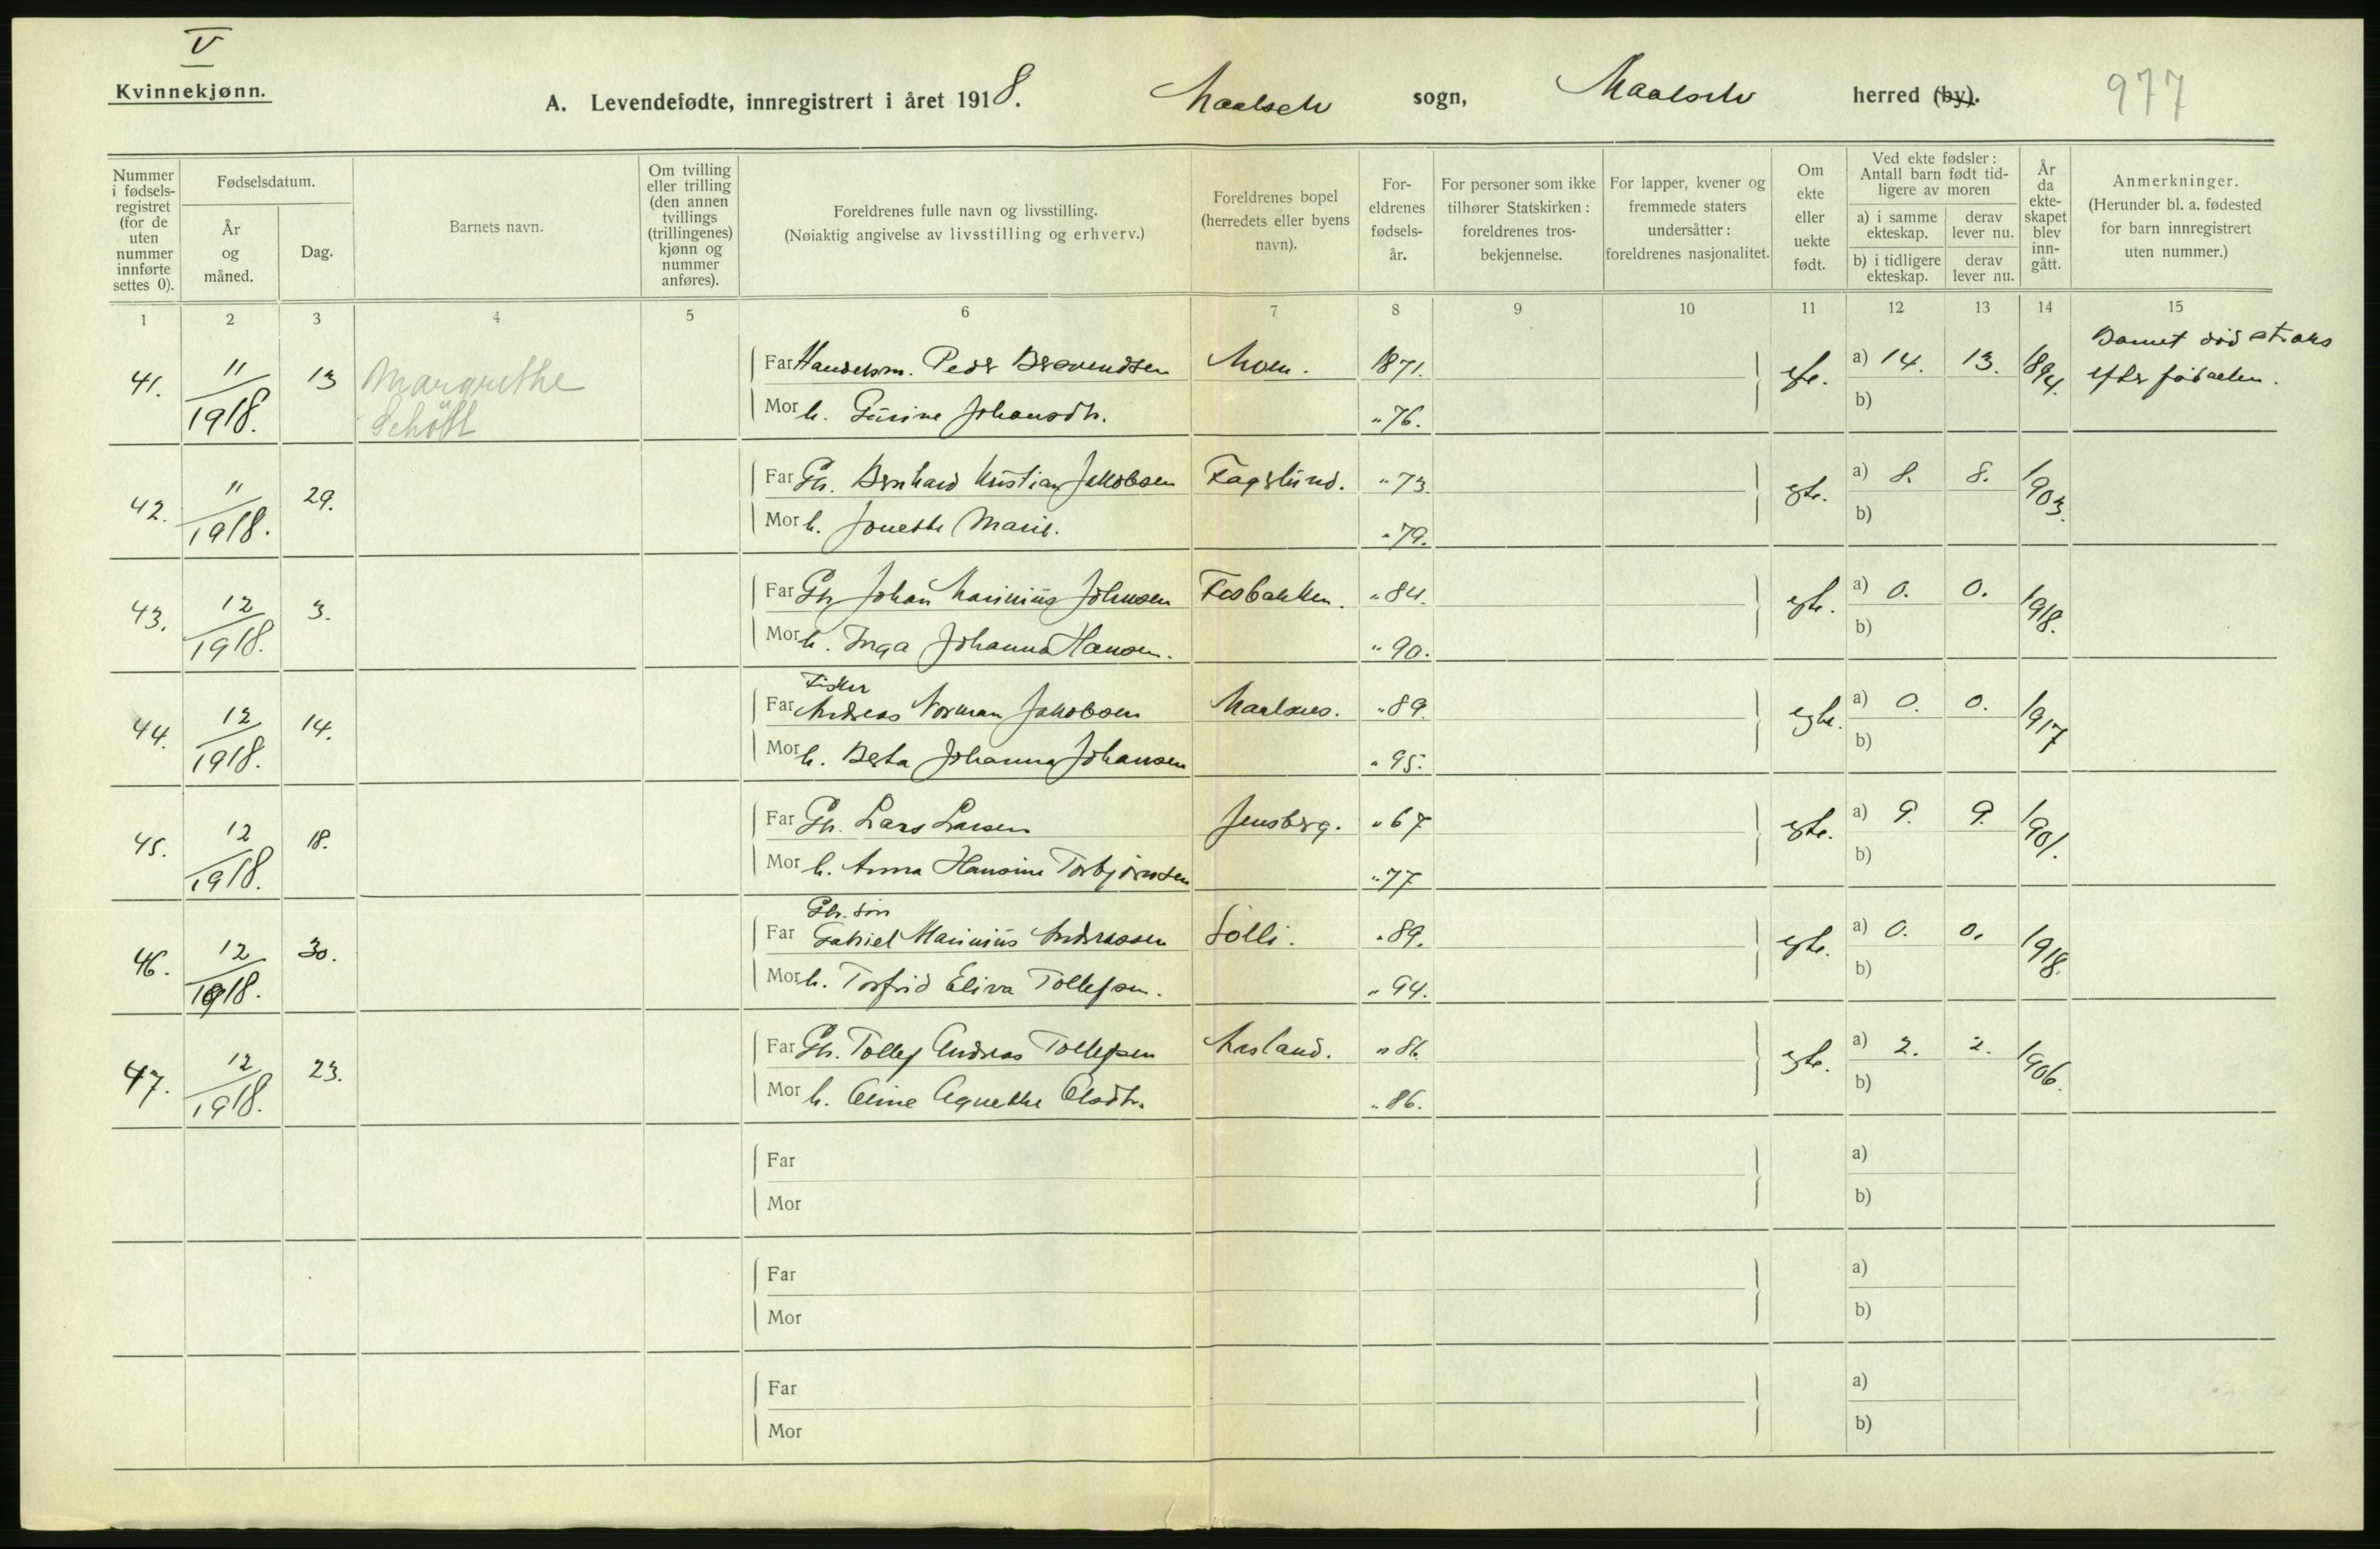 V
Kvinnekjønn.
A. Levendefødte, innregistrert i året 1918. Maalselv sogn, Maalselv herred (by). 977
Nummer i fødselsregistret (for de uten nummer innførte settes 0).
Fødselsdatum.
År og måned.
Dag.
Barnets navn.
Om tvilling eller trilling (den annen tvillings (trillingenes) kjønn og nummer anføres).
Foreldrenes fulle navn og livsstilling.
(Nøiaktig angivelse av livsstilling og erhverv.)
Foreldrenes bopel (herredets eller byens navn).
Foreldrenes fødselsår.
For personer som ikke tilhører Statskirken: foreldrenes trosbekjennelse.
For lapper, kvener og fremmede staters undersåtter: foreldrenes nasjonalitet.
Om ekte eller uekte født.
Ved ekte fødsler: Antall barn født tidligere av moren
a) i samme ekteskap.
derav lever nu.
b) i tidligere ekteskap.
derav lever nu.
År da ekteskapet blev inngått.
Anmerkninger.
(Herunder bl. a. fødested for barn innregistrert uten nummer.)
1 2 3 4 5 6 7 8 9 10 11 12 13 14 15
41. 11/1918. 13 Margrethe Schött
Far Handelsm. Peder Moen. 1871. a) 14. 13. 1894. Barnet død straks efter fødselen.
Mor h. Gurine Johansdtr. " 76. b)
42. 11/1918. 29.
Far Gb. Bernhard Kristian Jakobsen Fagerlund. " 73. egte. a) 8. 8. 1903.
Mor h. Jonette Marie. " 79. b)
43. 12/1918. 3.
Far Gb. Johan Marinius Johnsen Fosbakken. " 84. egte. a) 0. 0. 1918.
Mor h. Inga Johanna Hansen. " 90. b)
44. 12/1918. 14.
Fisker
Far Andreas Norman Jakobsen Maalsnes. " 89. egte. a) 0. 0. 1917
Mor h. Berta Johanna Johansen " 95. b)
45. 12/1918. 18.
Far Gb. Lars Larsen Jensberg. " 67 egte. a) 9. 9. 1901.
Mor h. Anna Hansine Torbjørnsen " 77 b)
46. 12/1918. 30.
Gb. søn
Far Gabriel Marinius Andreassen Solli. " 89. egte. a) 0. 0. 1918.
Mor h. Torfrid Eliva Tollefsen. " 94. b)
47. 12/1918. 23.
Far Gb. Tollef Andreas Tollefsen " 86. egte. a) 2. 2. 1906.
Mor h. Agnethe Olsdtr. " 86. b)
Far a)
Mor b)
Far a)
Mor b)
Far a)
Mor b)